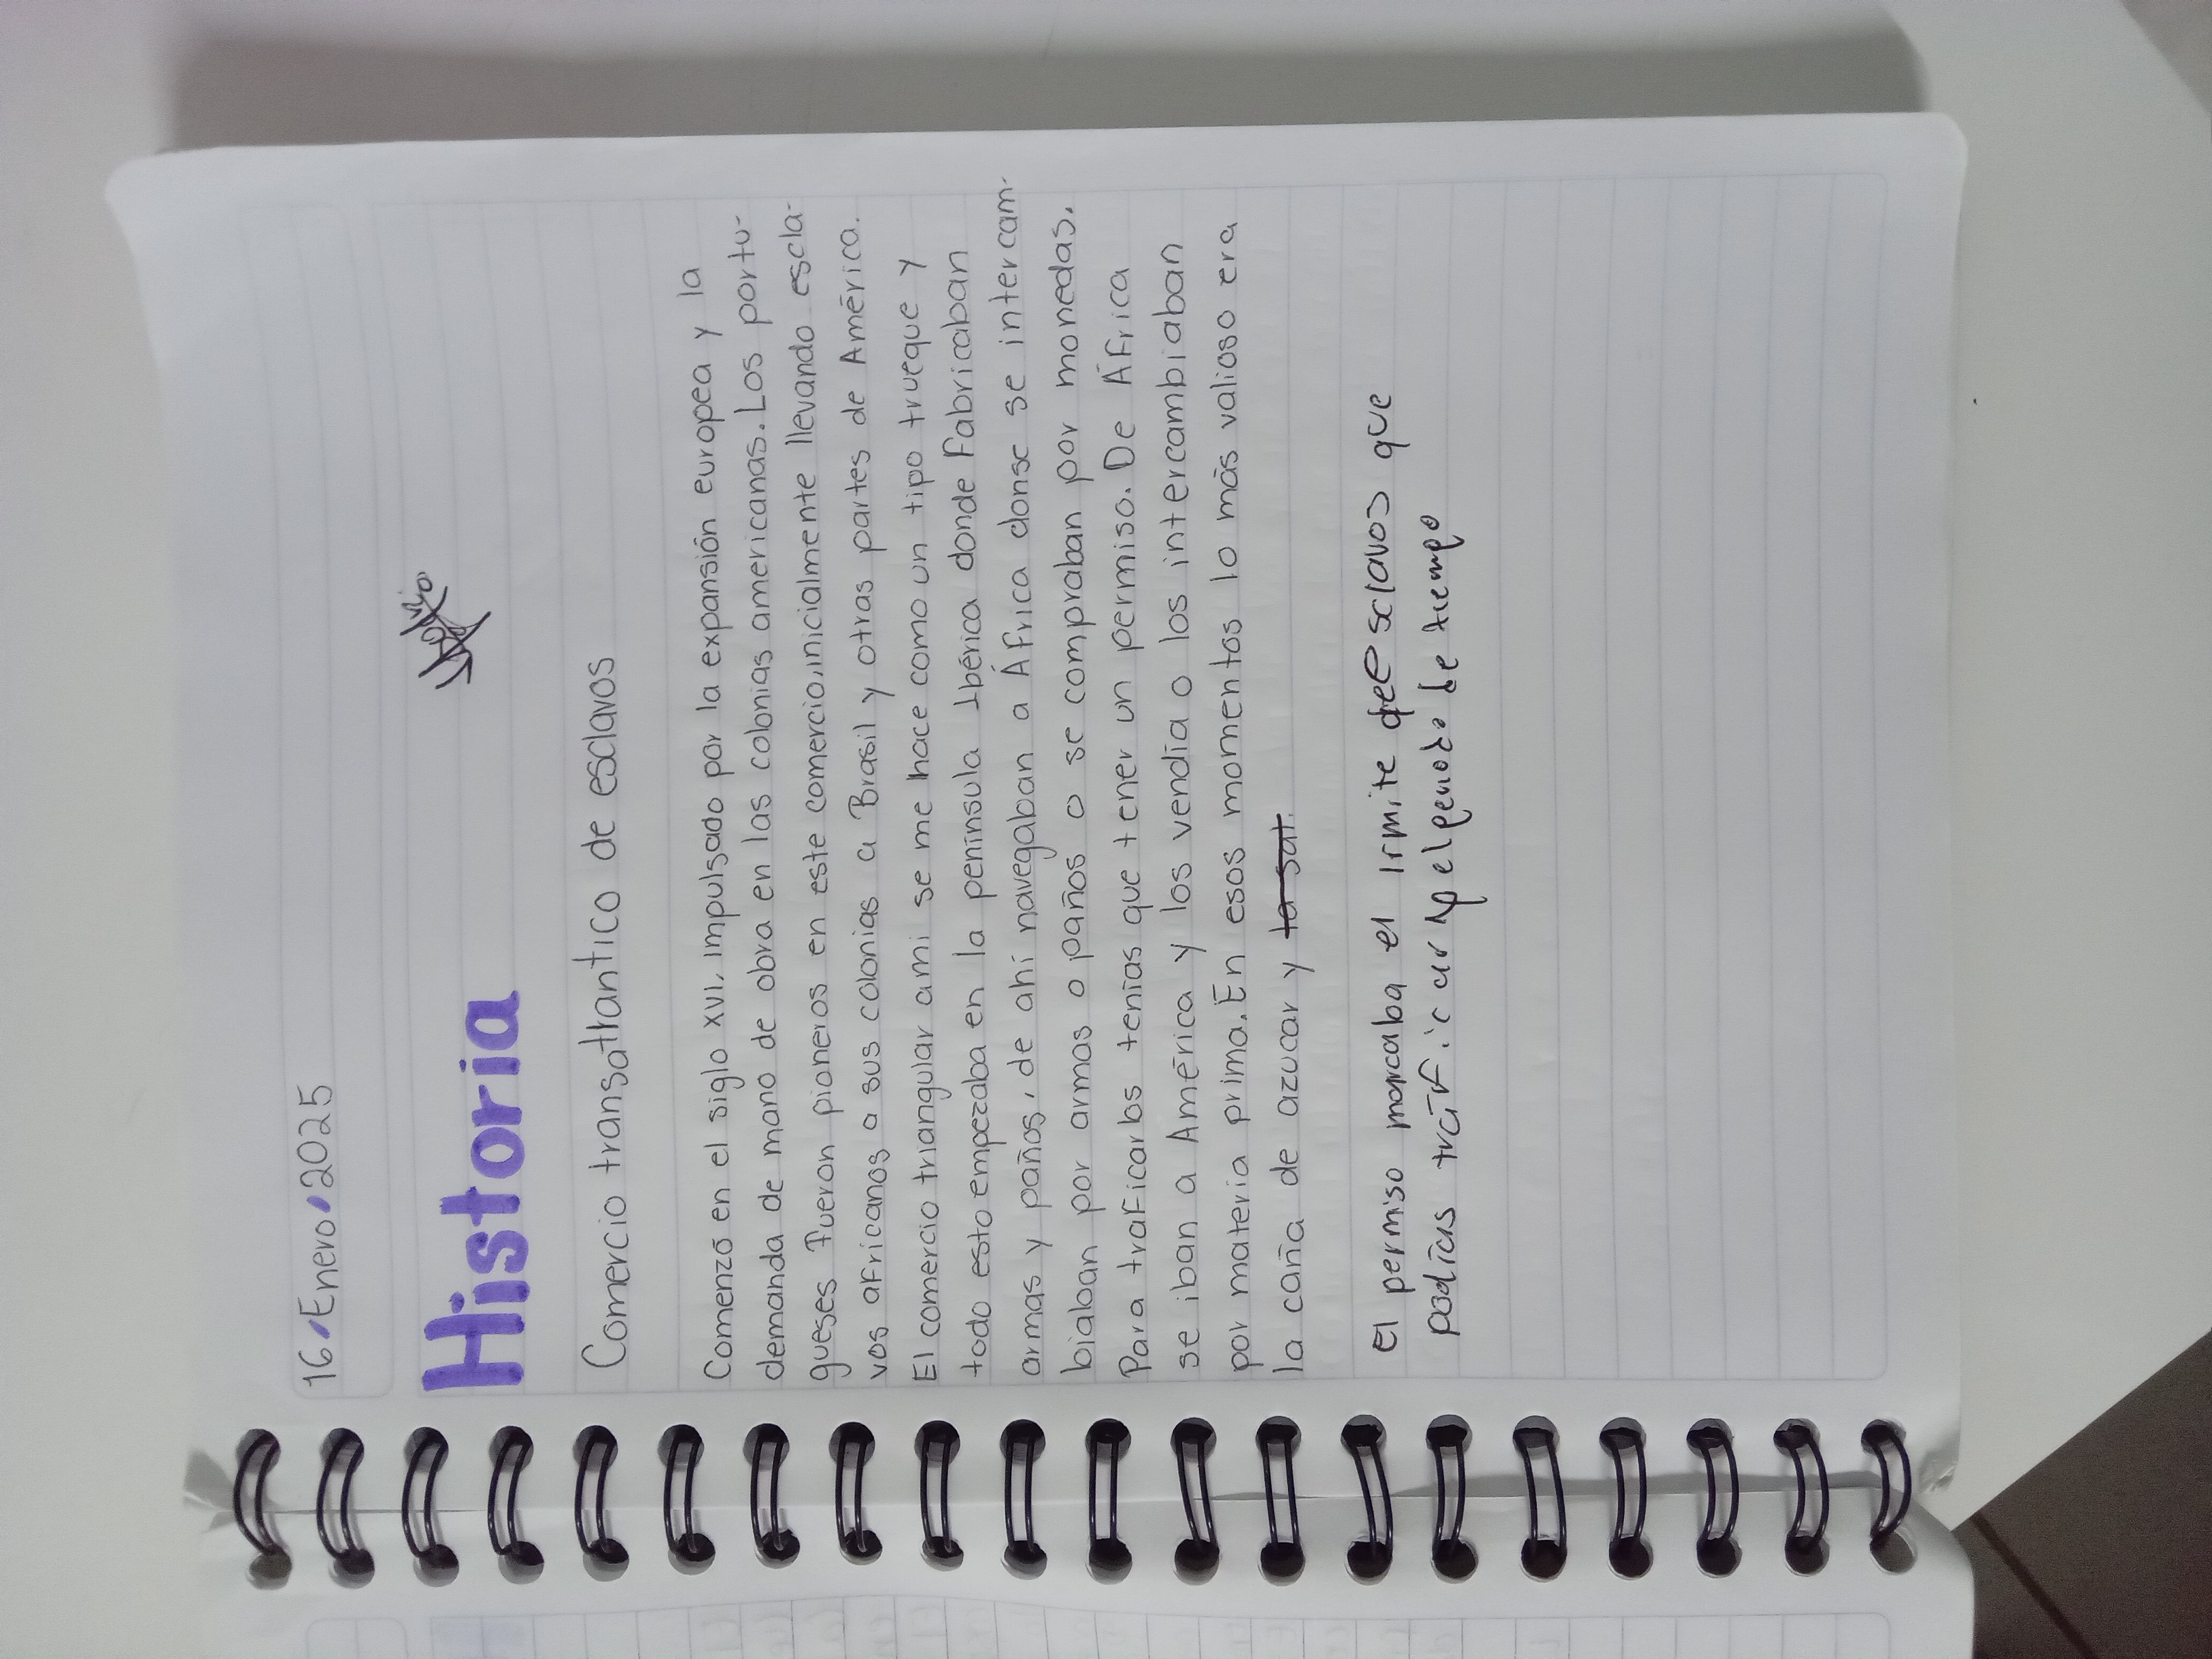 16/Enero/2025
Historia
Comercio transatlantico de esclavos
Comenzó en el siglo XVI, impulsado por la expansión europea y la
demanda de mano de obra en las colonias americanas. Los portu-
gueses fueron pioneros en este comercio, inicialmente llevando escla-
vos africanos a sus colonias a Brasil y otras partes de América.
El comercio triangular ami se me hace como un tipo trueque y
todo esto empezaba en la península Ibérica donde fabricaban
armas y paños, de ahí navegaban a África donse se intercam-
biaban por armas o paños o se compraban por monedas.
Para traficarlos tenías que tener un permiso. De África
se iban a América y los vendía o los intercambiaban
por materia prima. En esos momentos lo más valioso era
la caña de azucar y la sal.
El permiso marcaba el limite de esclavos que
podías traficar y el periodo de tiempo